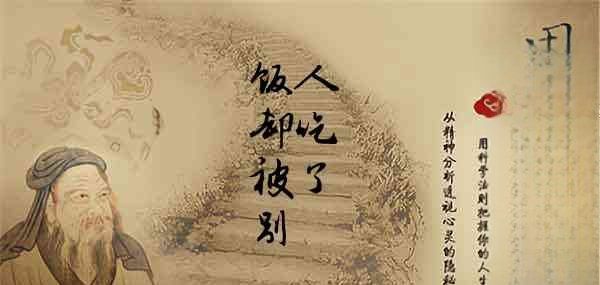 饭却被别
人吃了
从精神分析透视心灵的隐秘
用科学法则把握你的人生